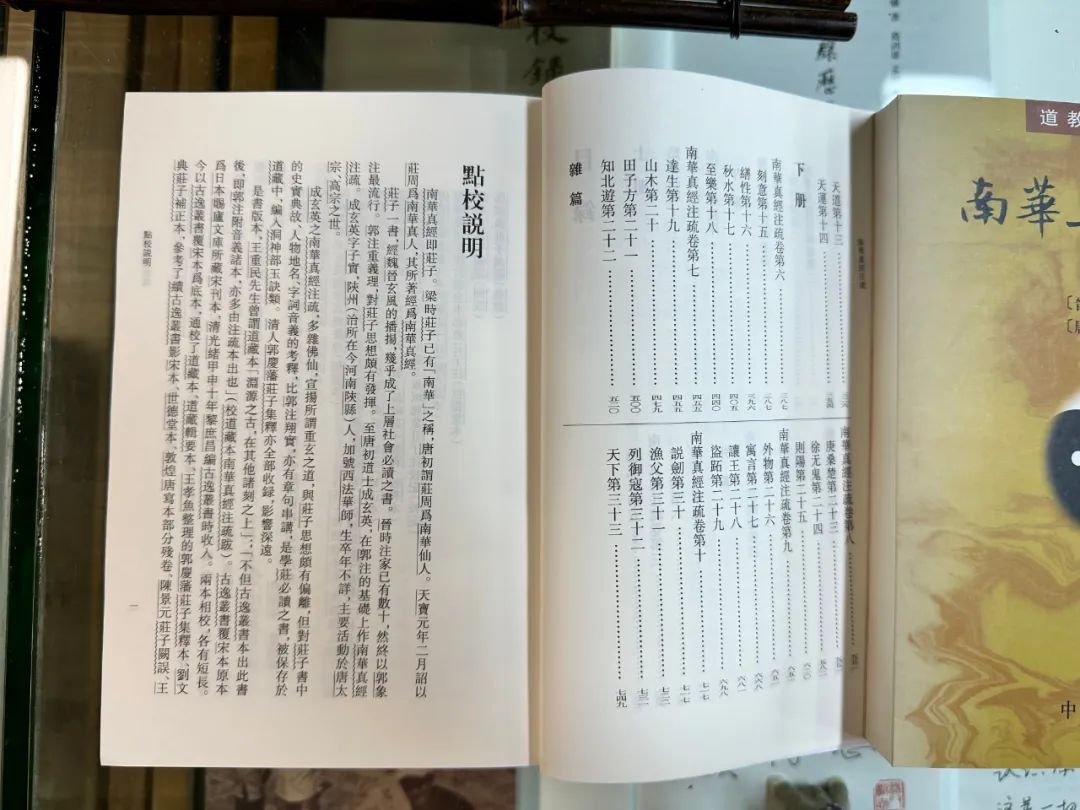 天道第十三
天運第十四
下册
南華真經注疏卷第六
刻意第十五
繕性第十六
秋水第十七
至樂第十八
南華真經注疏卷第七
達生第十九
山木第二十
田子方第二十一
知北遊第二十二
雜篇
三八七
三八七
三九六
四〇五
四四〇
四五五
四五五
四七九
五〇〇
五二〇
南華真經注疏卷第八
庚桑楚第二十三
徐无鬼第二十四
則陽第二十五
南華真經注疏卷第九
外物第二十六
寓言第二十七
讓王第二十八
盜跖第二十九
南華真經注疏卷第十
説劍第三十
漁父第三十一
列御寇第三十二
天下第三十三
七一七
七一七
七四九
點校説明
南華真經即莊子。梁時莊子已有「南華」之稱，唐初謂莊周爲南華仙人。天寶元年二月詔以
莊周爲南華真人，其所著經爲南華真經。
莊子一書，經魏晉玄風的播揚，幾乎成了上層社會必讀之書。晉時注家已有數十，然終以郭象
注最流行。郭注重義理，對莊子思想頗有發揮。至唐初道士成玄英，在郭注的基礎上作南華真經
注疏。成玄英字子實，陝州（治所在今河南陝縣）人，加號西法華師，生卒年不詳，主要活動於唐太
宗、高宗之世。
成玄英之南華真經注疏，多雜佛仙，宣揚所謂重玄之道，與莊子思想頗有偏離，但對莊子書中
的史實典故、人物地名、字詞音義的考釋，比郭注翔實，亦有章句串講，是學莊必讀之書，被保存於
道藏中，編入洞神部玉訣類。清人郭慶藩莊子集釋亦全部收録，影響深遠。
是書版本，王重民先生曾謂道藏本「淵源之古，在其他諸刻之上」；「不但古逸叢書本出此書
後，即郭注附音義諸本，亦多由注疏本出也」（校道藏本南華真經注疏跋）。古逸叢書覆宋本原本
爲日本賜廬文庫所藏宋刊本，清光緒甲申十年黎庶昌編古逸叢書時收入。兩本相校，各有短長。
今以古逸叢書覆宋本爲底本，通校了道藏本、道藏輯要本、王孝魚整理的郭慶藩莊子集釋本、劉文
典莊子補正本，參考了續古逸叢書影宋本、世德堂本、敦煌唐寫本部分殘卷、陳景元莊子闕誤、王
點校説明
一
道教
南華
中